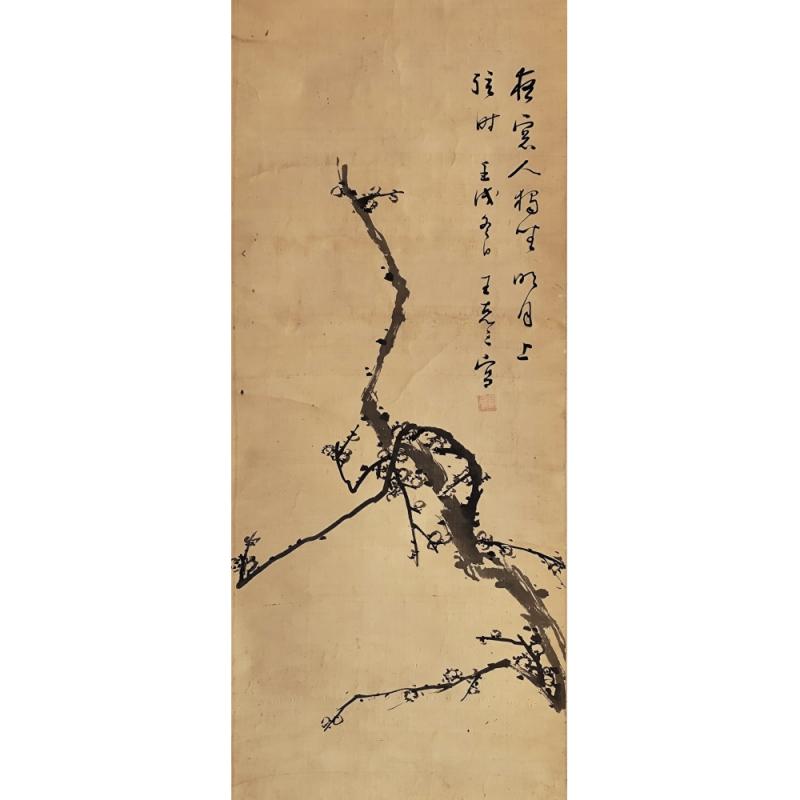 夜窓人獨坐明月上
弦时 壬戌冬日 王克三寫